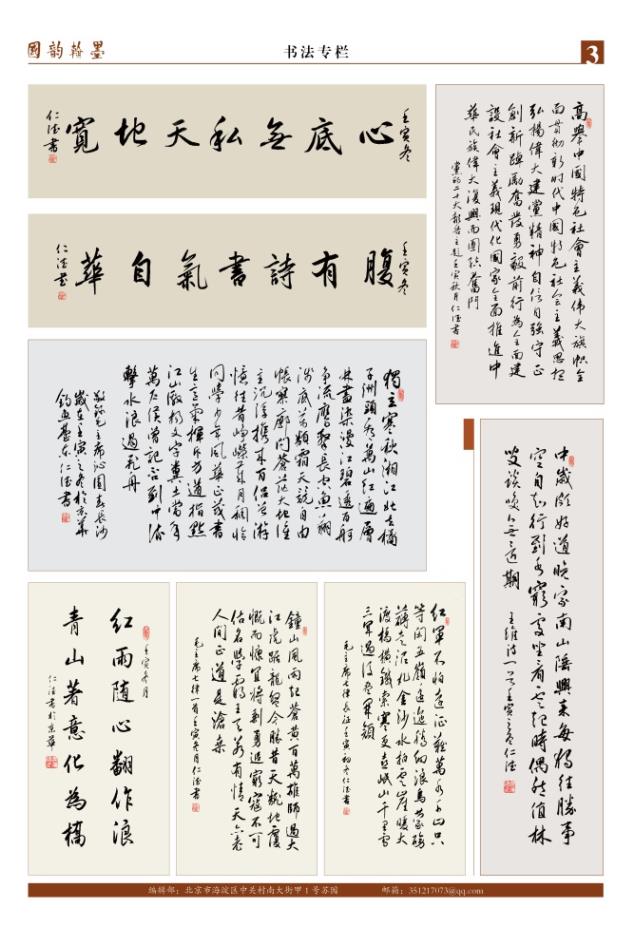 國韵翰墨
书法专栏
3
壬寅冬
心底無私天地寬
仁德書
壬寅冬
腹有詩書氣自華
仁德書
高舉中國特色社會主義偉大旗幟全
面貫彻新时代中國特色社会主義思想
弘揚偉大建黨精神自信自強守正
創新踔勵奮發勇毅前行為全面建
設社會主義現代化國家全面推進中
華民族偉大復興而團結奮鬥
黨的二十大報告主題壬寅秋月仁德書
獨立寒秋湘江北去橘
子洲頭看萬山紅遍層
林盡染漫江碧透百舸
争流鷹擊長空魚翔
淺底萬類霜天競自由
悵寥廓問蒼茫大地誰
主沉浮携來百侣曾游
憶往昔崢嶸歲月稠恰
同學少年風華正茂書
生意氣揮斥方遒指點
江山激揚文字糞土當年
萬户侯曾記否到中流
擊水浪遏飛舟
敬錄毛主席沁園春長沙
歲在壬寅之冬於京華
仁德書
中歲頗好道晚家南山陲興來每獨往勝事
空自知行到水窮處坐看雲起時偶然值林
叟談笑無還期
王維詩一首壬寅之冬仁德
紅軍不怕遠征難萬水千山只
等闲五嶺逶迤騰細浪烏蒙磅
礴走泥丸金沙水拍雲崖暖大
渡橋横鐵索寒更喜岷山千里雪
三軍過後盡開顏
毛主席七律長征壬寅初冬仁德書
鐘山風雨起蒼黄百萬雄師過大
江虎踞龍盤今勝昔天翻地覆
慨而慷宜將剩勇追窮寇不可
沽名學霸王天若有情天亦老
人間正道是滄桑
毛主席七律一首壬寅冬月仁德書
壬寅冬月
紅雨随心翻作浪
青山著意化為橋
仁德書於京華
编辑部：北京市海淀区中关村南大街甲1号苏园
邮箱：351217073@qq.com